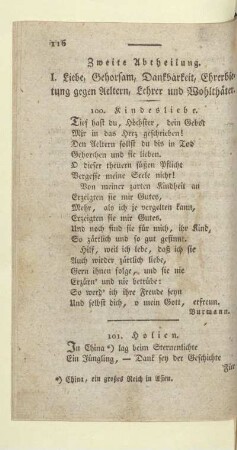 116
Zweite Abtheilung.
I. Liebe, Gehorsam, Dankbarkeit, Ehrerbie-
tung gegen Aeltern, Lehrer und Wohlthäter.
100. Kindesliebe.
Tief hast du, Höchster, dein Gebot
Mir in das Herz geschrieben!
Den Aeltern sollst du bis in Tod
Gehorchen und sie lieben.
O dieser theuern süßen Pflicht
Vergesse meine Seele nicht!
Von meiner zarten Kindheit an
Erzeigten sie mir Gutes,
Mehr, als ich je vergelten kann,
Erzeigten sie mir Gutes,
Und noch sind sie für mich, ihr Kind,
So zärtlich und so gut gesinnt.
Hilf, weil ich lebe, daß ich sie
Auch wieder zärtlich liebe,
Gern ihnen folge, und sie nie
Erzürn' und nie betrübe:
So werd' ich ihre Freude seyn
Und selbst dich, o mein Gott, erfreun.
Burmann.
101. Holien.
In China *) lag beim Sternenlichte
Ein Jüngling, — Dank sey der Geschichte
Für
*) China, ein großes Reich in Asien.